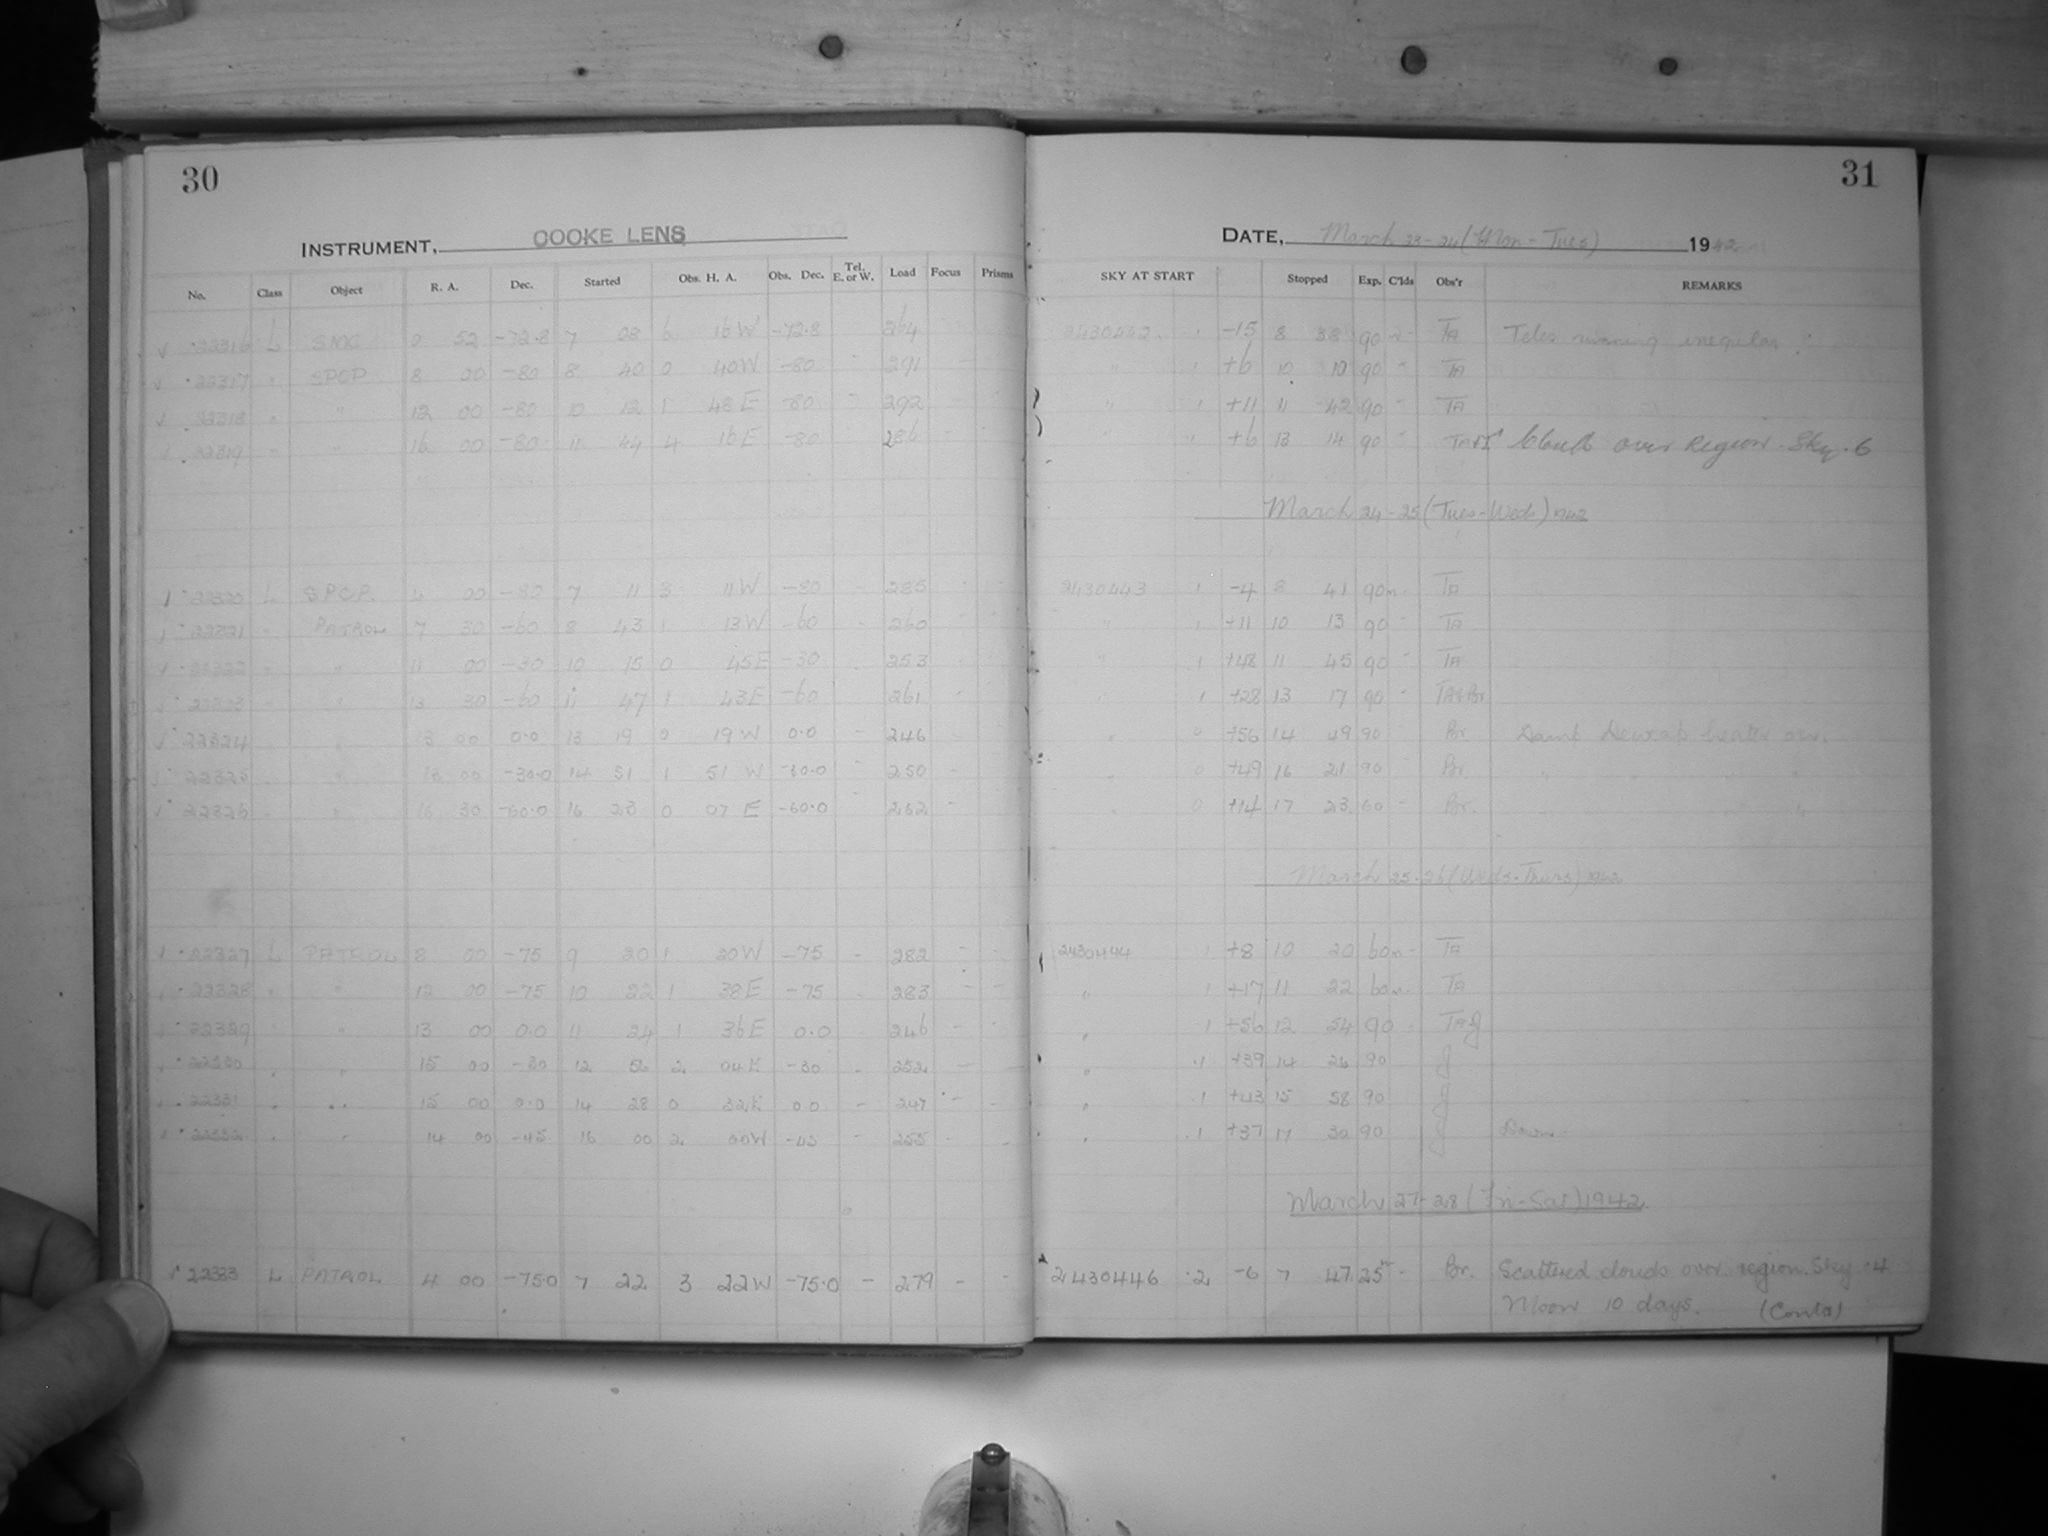 30
INSTRUMENT, COOKE LENS
No. Class Object R. A. Dec. Started Obs. H. A. Obs. Dec. Tel. E. or W. Load Focus Prisms
22316 L SMC 0 52 -72.8 7 08 6 16 W -72.8 264
22317 " SPCP 8 00 -80 8 40 0 40 W -80 291
22318 " " 12 00 -80 10 12 1 48 E -80 292
22319 " " 16 00 -80 11 44 4 16 E -80 286
22320 L S.P.C.P. 4 00 -80 7 11 3 11 W -80 285
22321 " PATROL 7 30 -60 8 43 1 13 W -60 260
22322 " " 11 00 -30 10 15 0 45 E -30 253
22323 " " 13 30 -60 11 47 1 43 E -60 261
22324 " 13 00 0.0 13 19 0 19 W 0.0 - 246 -
22325 " 13 00 -30.0 14 51 1 51 W -30.0 - 250 -
22326 " 16 30 -60.0 16 23 0 07 E -60.0 - 262 -
22327 L PATROL 8 00 -75 9 20 1 20 W -75 - 282 - -
22328 " " 12 00 -75 10 22 1 38 E -75 - 283 - -
22329 " " 13 00 0.0 11 24 1 36 E 0.0 - 246 - -
22330 " " 15 00 -30 12 56 2 04 E -30 - 252 - -
22331 " " 15 00 0.0 14 28 0 32 E 0.0 - 247 - -
22332 " " 14 00 -45 16 00 2 00 W -45 - 255 - -
22333 L PATROL 4 00 -75.0 7 22 3 22 W -75.0 - 279 - -
31
DATE, March 23-24 (Mon-Tues) 1942
SKY AT START Stopped Exp. C'lds Obs'r REMARKS
2430442 1 -15 8 38 90 m - TA Teles running irregular
" 1 +6 10 10 90 - TA
" 1 +11 11 42 90 - TA
" " +6 13 14 90 - Clouds over Region. Sky. 6
March 24-25 (Tues-Weds) 1942
2430443 1 -4 8 41 90 m - TA
" 1 +11 10 13 90 - TA
" 1 +48 11 45 90 - TA
" 1 +28 13 17 90 - TA & Br
" 0 +56 14 49 90 Br Damp Dewcap heater on.
" 0 +49 16 21 90 - Br. " " "
" 0 +14 17 23 60 - Br. "
March 25-26 (Weds-Thurs) 1942
2430444 1 +8 10 20 60 m - TA
" 1 +17 11 22 60 m TA
" 1 +56 12 54 90 TA J
" .1 +39 14 26 90 J
" .1 +43 15 58 90 J
" .1 +37 17 30 90 J Dawn.
March 27-28 (Fri-Sat) 1942
2430446 .2 -6 7 47 25 m - Br. Scattered clouds over region. Sky .4
Moon 10 days. (Contd)